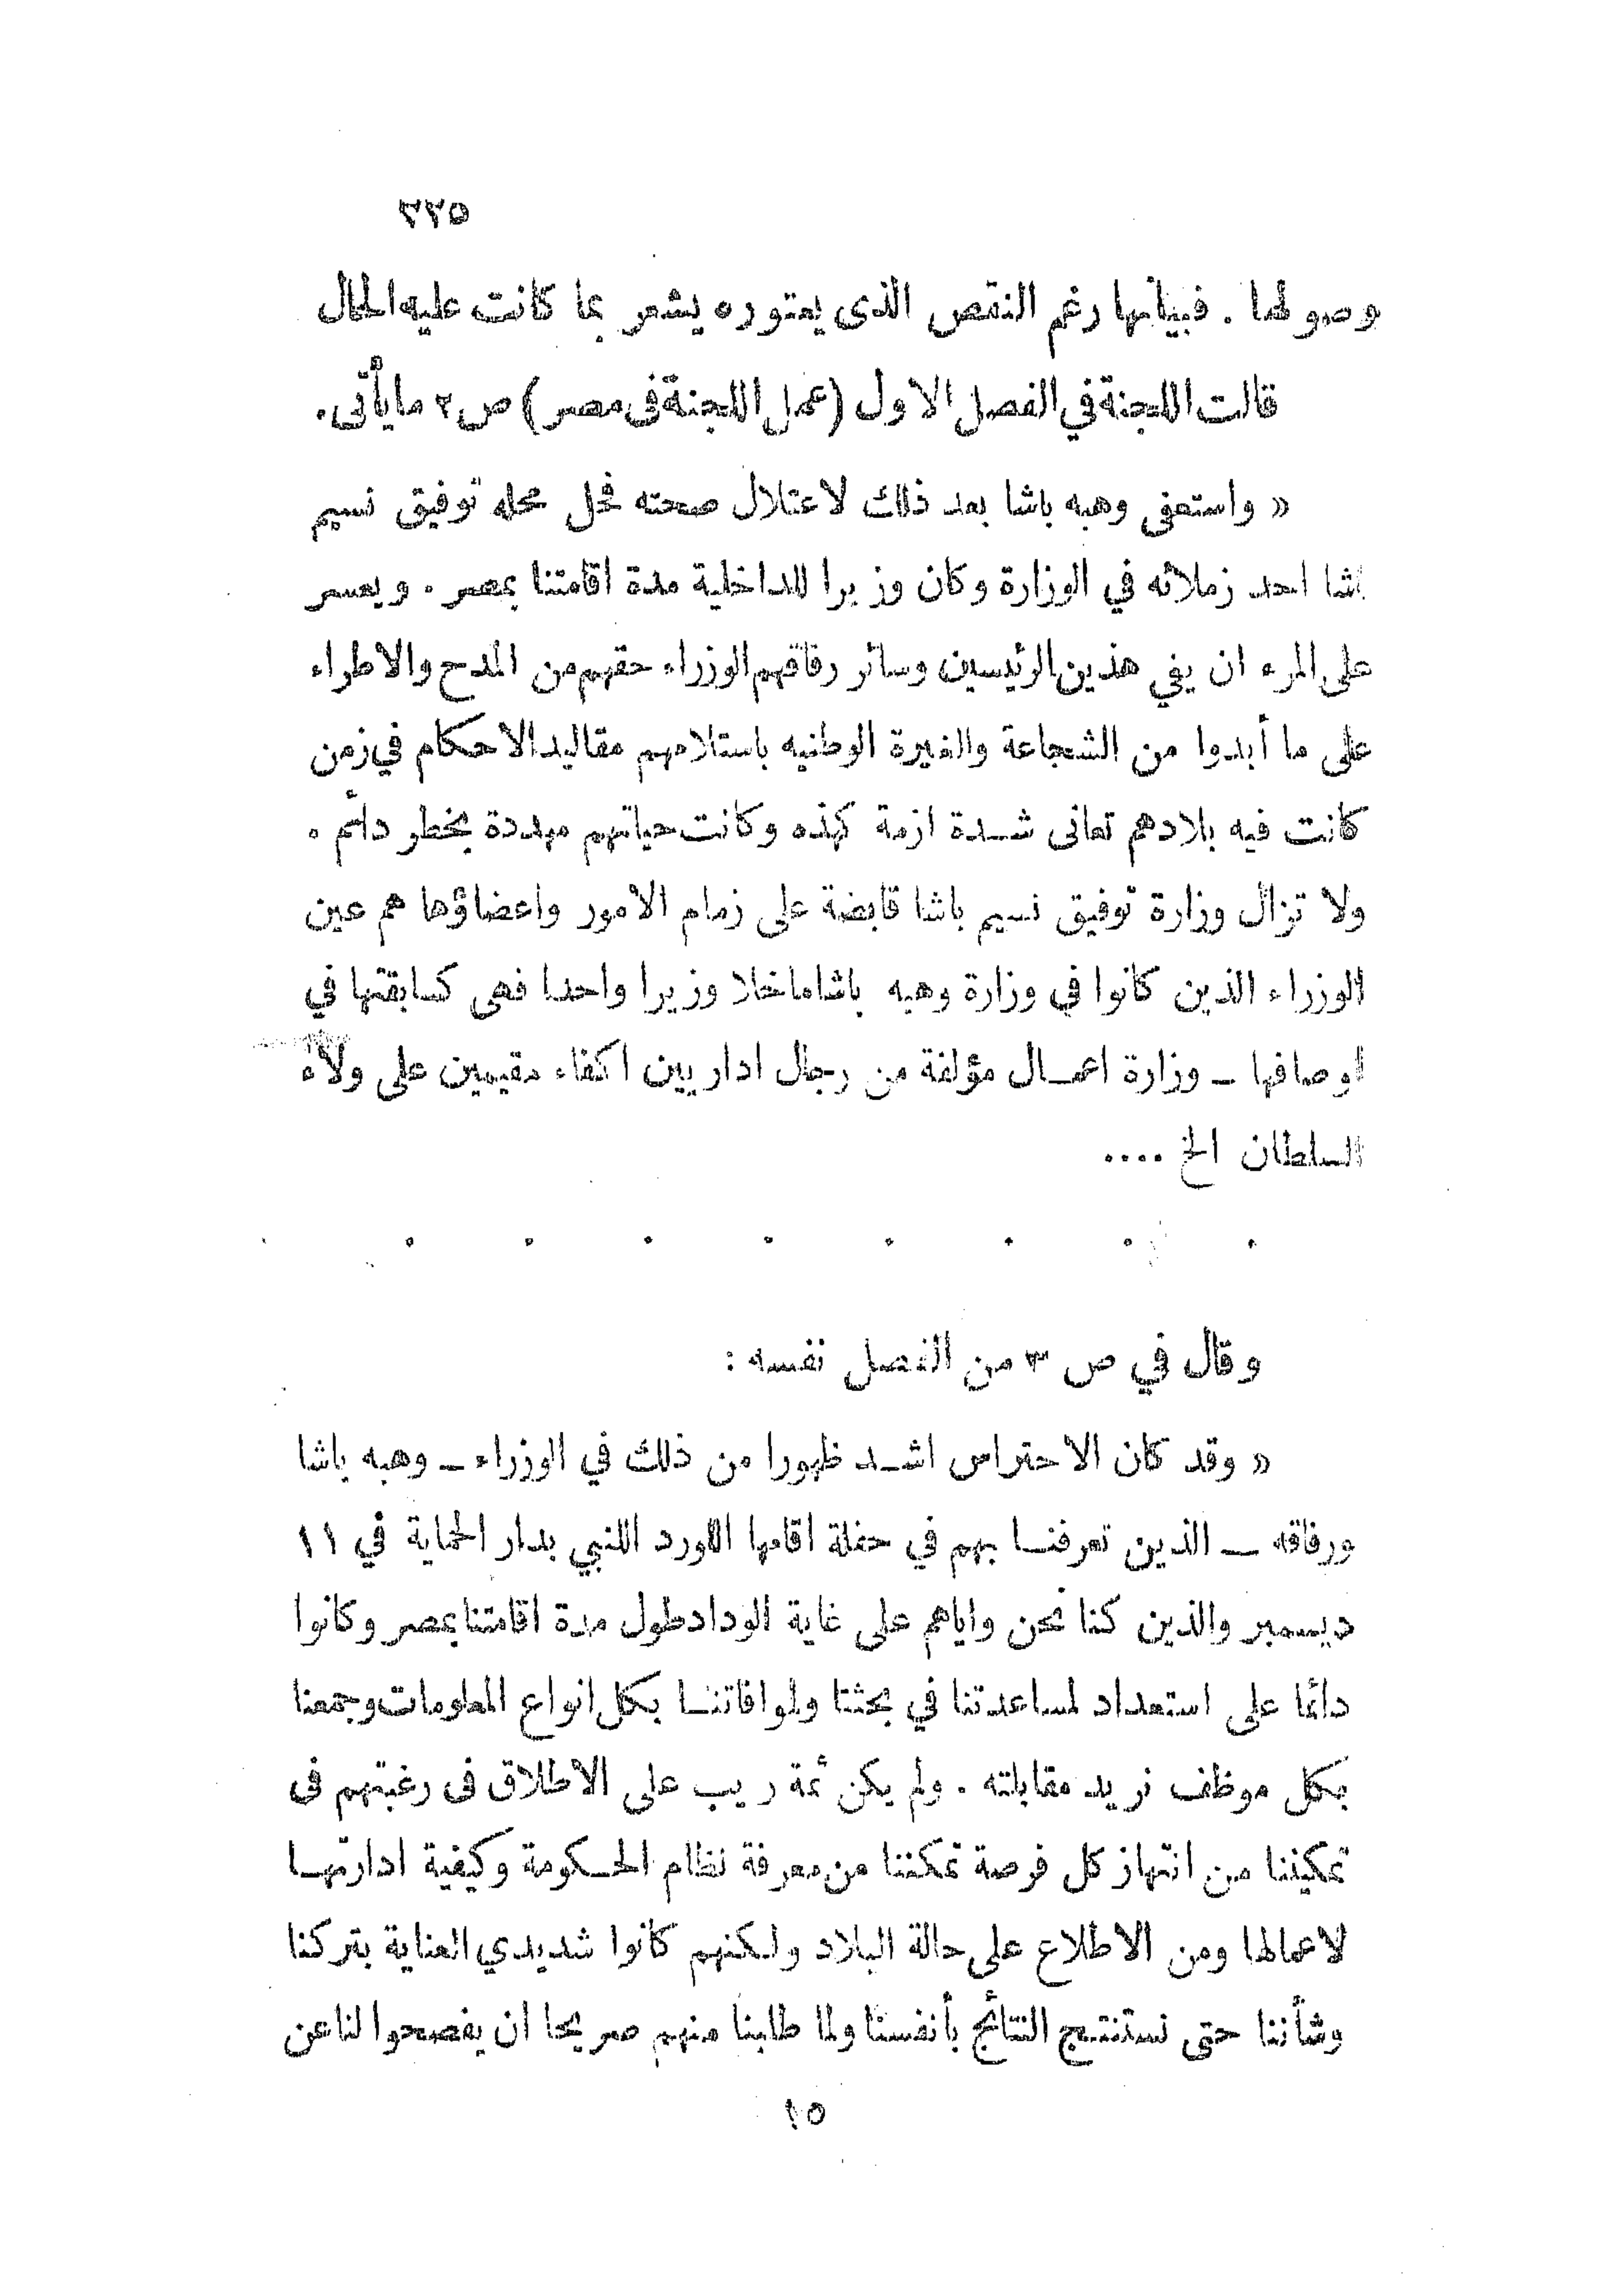 ٢٢٥
وصولها . فبيانها رغم النقص الذى يعتوره يشعر بما كانت عليه الحال
قالت اللجنة في الفصل الاول (عمل اللجنة فى مصر) ص ٢ ما يأتى .
« واستعفى وهبه باشا بعد ذلك لاعتلال صحته فحل محله توفيق نسيم
اشا احد زملائه في الوزارة وكان وزيرا للداخلية مدة اقامتنا بمصر . ويعسر
على المرء ان يفي هذين الرئيسين وسائر رفاقهم الوزراء حقهم من المدح والاطراء
على ما أبدوا من الشجاعة والغيرة الوطنيه باستلامهم مقاليد الاحكام في زمن
كانت فيه بلادهم تعانى شدة ازمة كهذه وكانت حياتهم مهددة بخطر دائم .
ولا تزال وزارة توفيق نسيم باشا قابضة على زمام الامور واعضاؤها هم عين
الوزراء الذين كانوا فى وزارة وهبه باشا ماخلا وزيرا واحدا فهى كسابقتها في
اوصافها ـ وزارة اعمال مؤلفة من رجال اداريين اكفاء مقيمين على ولاء
السلطان الخ ....
. . . . . . . .
وقال في ص ٣ من الفصل نفسه :
« وقد كان الاحتراس اشد ظهورا من ذلك في الوزراء ـ وهبه باشا
ورفاقه ـ الذين تعرفنا بهم في حفلة اقامها اللورد اللنبي بدار الحماية في ١١
ديسمبر والذين كنا نحن واياهم على غاية الوداد طول مدة اقامتنا بمصر وكانوا
دائما على استعداد لمساعدتنا في بحثنا ولموافاتنا بكل انواع المعلومات وجمعنا
بكل موظف نريد مقابلته . ولم يكن ثمة ريب على الاطلاق فى رغبتهم فى
تمكيننا من انتهاز كل فرصة تمكننا من معرفة نظام الحكومة وكيفية ادارتها
لاعمالها ومن الاطلاع على حالة البلاد ولكنهم كانوا شديدي العناية بتركنا
وشأننا حتى نستنتج النتائج بأنفسنا ولما طلبنا منهم صريحا ان يفصحوا لنا عن
١٥